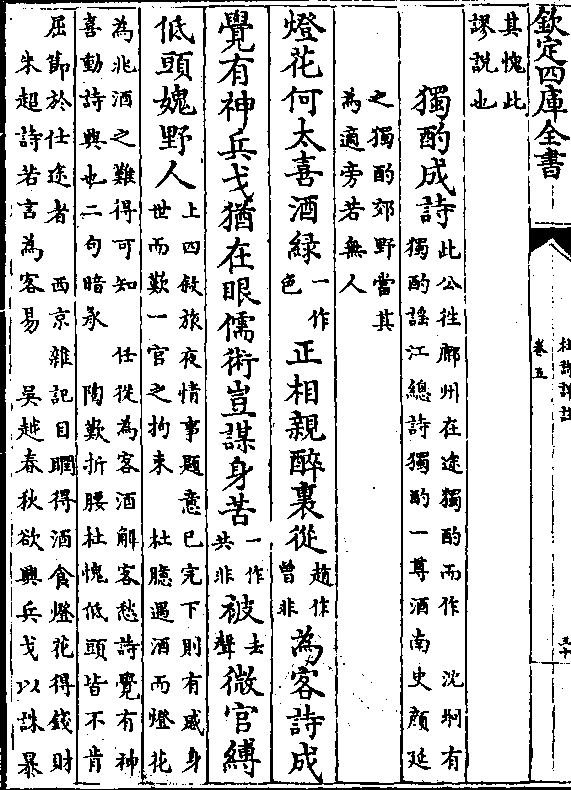 欽定四庫全書
杜詩詳註
卷五
三十
其愧此
謬説也
獨酌成詩
此公往鄜州在途獨酌而作 沈烱有
獨酌謡江總詩獨酌一尊酒南史顔延
之獨酌郊野當其
為適旁若無人
燈花何太喜酒緑一作色正相親醉裏從趙作曾非為客詩成
覺有神兵戈猶在眼儒術豈謀身苦一作共非被去聲微官縛
低頭媿野人
上四叙旅夜情事題意已完下則有感身
世而歎一官之拘束 杜臆遇酒而燈花
為兆酒之難得可知 任從為客酒解客愁詩覺有神
喜動詩興也二句暗承 陶歎折腰杜愧低頭皆不肯
屈節於仕途者 西京雜記目瞤得酒食燈花得錢財
朱超詩若言為客易 吳越春秋欲興兵戈以誅暴